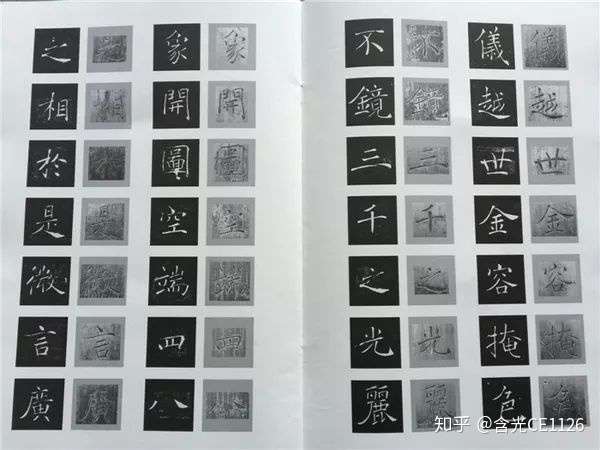 儀越世金容掩色
不鏡三千之光麗
象開圖空端四八
之相於是微言廣
知乎 @含光CE1126